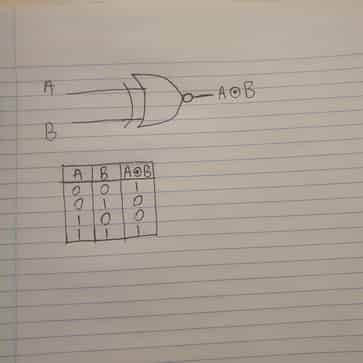 A
A⊙B
B
A B A⊙B
0 0 1
0 1 0
1 0 0
1 1 1